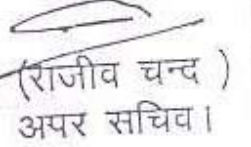 (राजीव चन्द )
अपर सचिव।